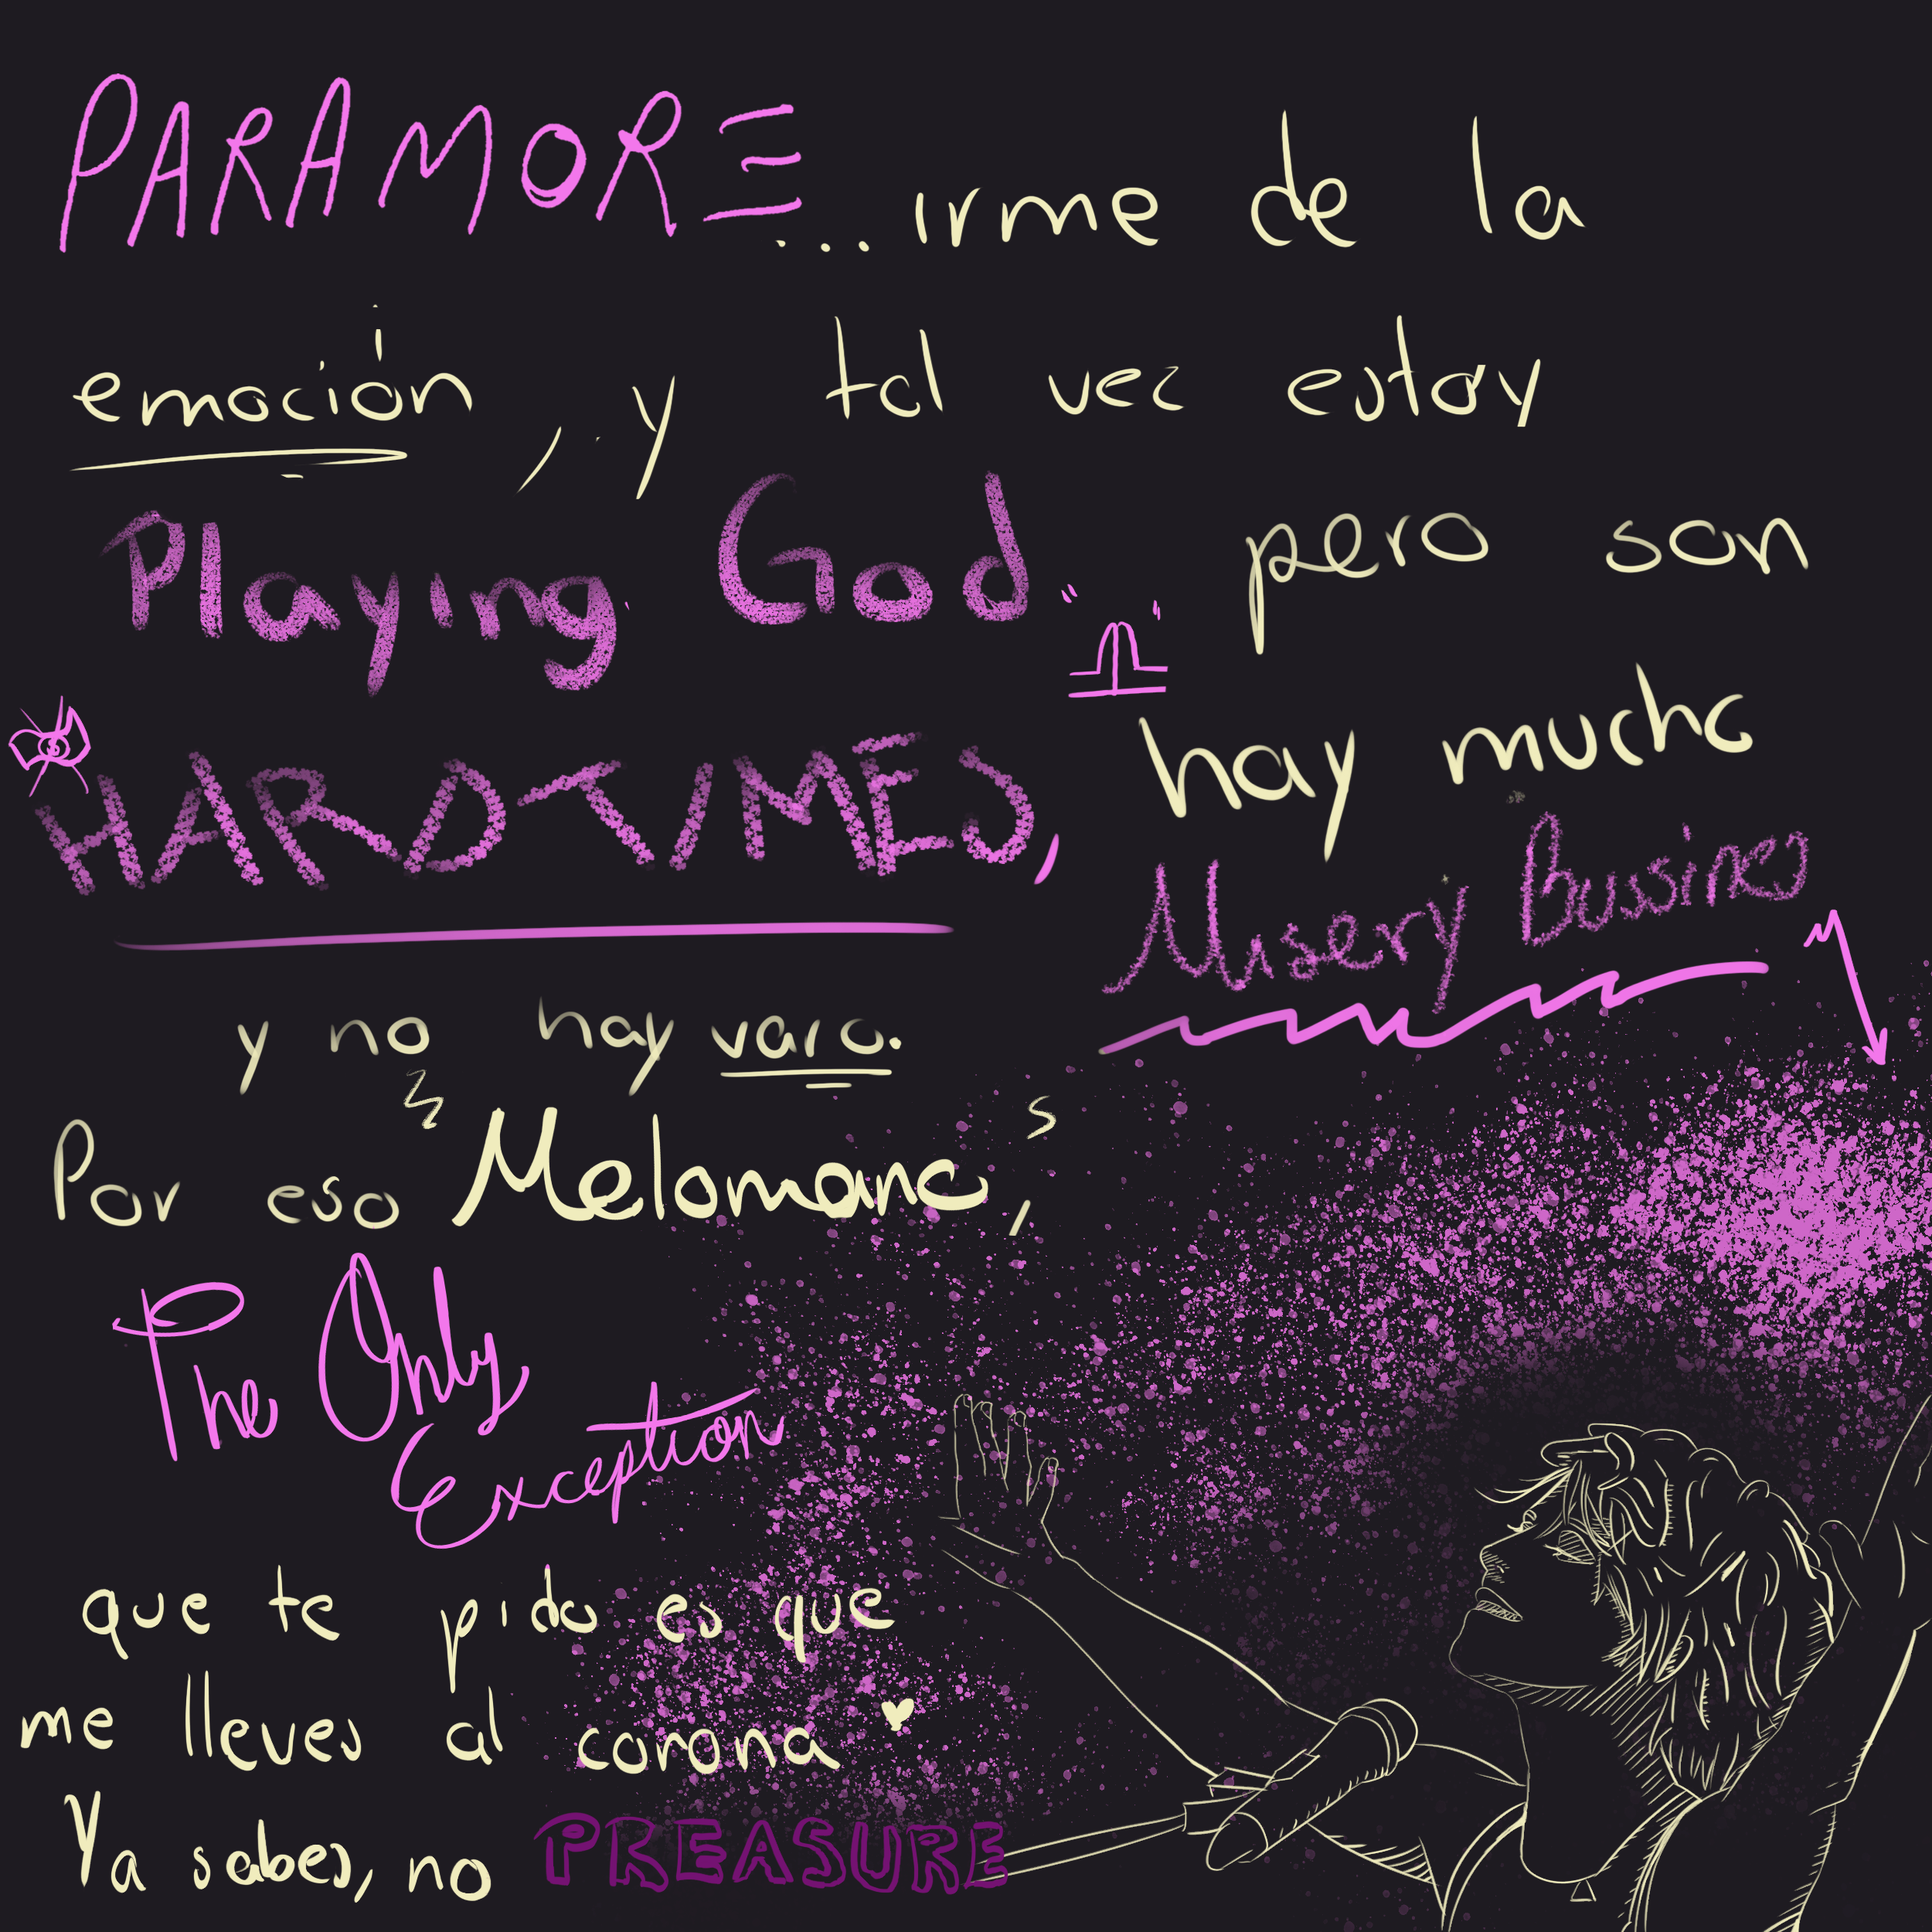 PARAMORE ...irme de la
emoción, y tal vez estoy
Playing God.. pero son
HARD TIMES, hay mucho
Misery Bussines
y no hay varo.
Por eso Melomano,
The Only
Exception
que te pido es que
me lleves al corona
Ya sabes, no PREASURE